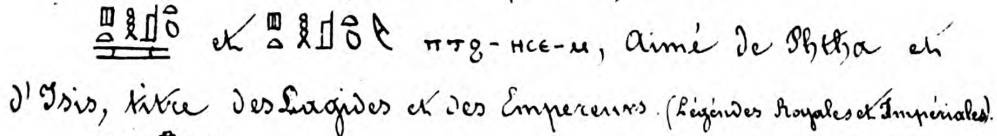 𓊪𓏏𓎛𓊨𓏏𓆇 et 𓊪𓏏𓎛𓊨𓏏𓆇 ⲡⲧϩ-ⲏⲥⲉ-ⲙ, Aimé de Phtha et
d'Isis, titre des Lagides et des Empereurs. (Légendes Royales et Impériales).